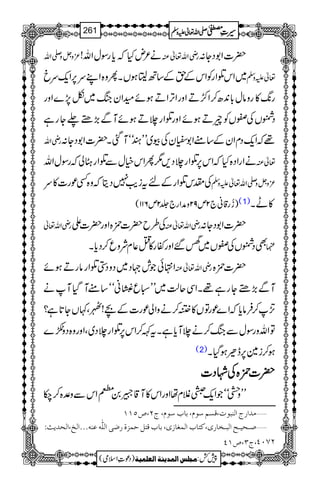 سیرتِ مصطفیٰ صلی اللہ تعالیٰ علیہ وسلم 261
حضرت ابودجانہ رضی اللہ تعالیٰ عنہ نے عرض کیا کہ یا رسول اللہ! عزوجل و صلی اللہ
تعالیٰ علیہ وسلم میں اس تلوار کو اس کے حق کے ساتھ لیتا ہوں۔ پھر وہ اپنے سر پر ایک سرخ
رنگ کا رومال باندھ کر اکڑتے اور اتراتے ہوئے میدانِ جنگ میں نکل پڑے اور
دشمنوں کی صفوں کو چیرتے ہوئے اور تلوار چلاتے ہوئے آگے بڑھتے چلے جا رہے
تھے کہ ایک دم ان کے سامنے ابوسفیان کی بیوی ’’ہند‘‘ آ گئی۔ حضرت ابودجانہ رضی اللہ
تعالیٰ عنہ نے ارادہ کیا کہ اس پر تلوار چلا دیں مگر پھر اس خیال سے تلوار ہٹا لی کہ رسول اللہ
عزوجل و صلی اللہ تعالیٰ علیہ وسلم کی مقدس تلوار کے لئے یہ زیب نہیں دیتا کہ وہ کسی عورت کا سر
کاٹے۔ (1) (زُرقانی ج۲ ص۲۹ و مدارج جلد۲ ص۱۱۶)
حضرت ابودجانہ رضی اللہ تعالیٰ عنہ کی طرح حضرت حمزہ اور حضرت علی رضی اللہ تعالیٰ
عنہما بھی دشمنوں کی صفوں میں گھس گئے اور کفار کا قتلِ عام شروع کر دیا۔
حضرت حمزہ رضی اللہ تعالیٰ عنہ انتہائی جوشِ جہاد میں دو دستی تلوار مارتے ہوئے
آگے بڑھتے جا رہے تھے۔ اسی حالت میں ’’سباع غبشانی‘‘ سامنے آ گیا آپ نے
تڑپ کر فرمایا کہ اے عورتوں کا ختنہ کرنے والی عورت کے بچے! ٹھہر، کہاں جاتا ہے؟
تو اللہ و رسول سے جنگ کرنے چلا آیا ہے۔ یہ کہہ کر اس پر تلوار چلا دی، اور وہ دو ٹکڑے
ہو کر زمین پر ڈھیر ہو گیا۔ (2)
حضرت حمزہ کی شہادت
’’وحشی‘‘ جو ایک حبشی غلام تھا اور اس کا آقا جبیر بن مطعم اس سے وعدہ کر چکا
مدارج النبوت، قسم سوم، باب سوم، ج۲، ص۱۱۵
صحیح البخاری، کتاب المغازی، باب قتل حمزة رضی اللّٰہ عنہ...الخ،الحدیث:
۴۰۷۲، ج۳، ص۴۱
پیش کش: مجلس المدینة العلمیة (دعوتِ اسلامی)